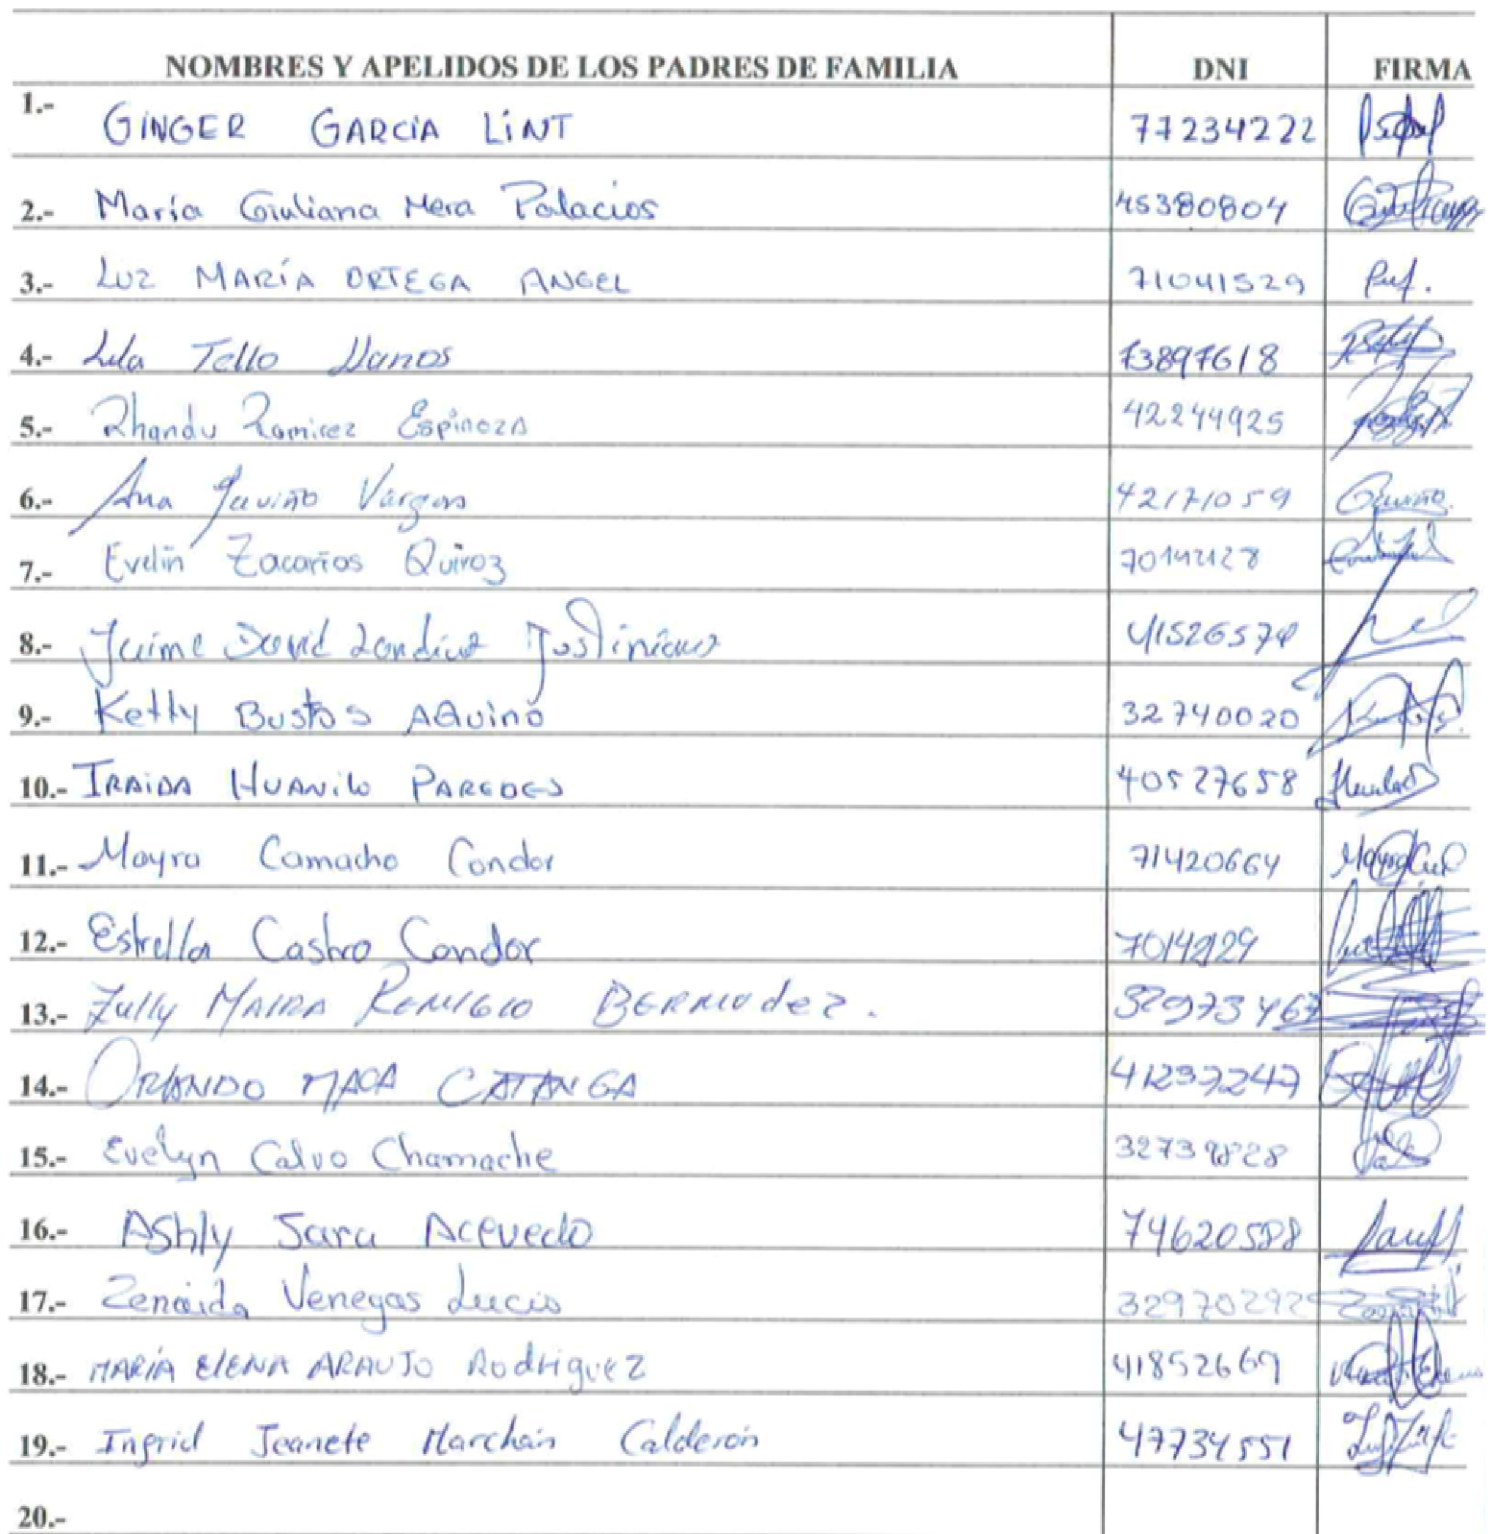 NOMBRES Y APELIDOS DE LOS PADRES DE FAMILIA DNI FIRMA
1.- GINGER GARCIA LINT 77234222
2.- María Giuliana Mera Palacios 45380804
3.- LUZ MARÍA ORTEGA ANGEL 71041529
4.- Lila Tello Llanos 73897618
5.- Rhandu Ramirez Espinoza 42244925
6.- Ana Gaviño Vargas 42171059
7.- Evelin Zacarías Quiroz 70142128
8.- Jaime David Landauz Justiniano
9.- Ketty Bustos AQuino 32740020
10.- IRAIDA HUANilo PAREDES 40527658
11.- Mayra Camacho Condor 71420664
12.- Estrella Castro Condor 70142129
13.- Zully MAIRA REMIGIO BERMUdez. 32973467
14.- ORLANDO MACA CATANGA 41237247
15.- Evelyn Calvo Chamache
16.- Ashly Jara Acevedo 74620588
17.- Zenaida Venegas Lucio 32970292
18.- MARÍA ElENA ARAUJO Rodriguez 41852669
19.- Ingrid Jeanete Marchán Calderón 47734551
20.-